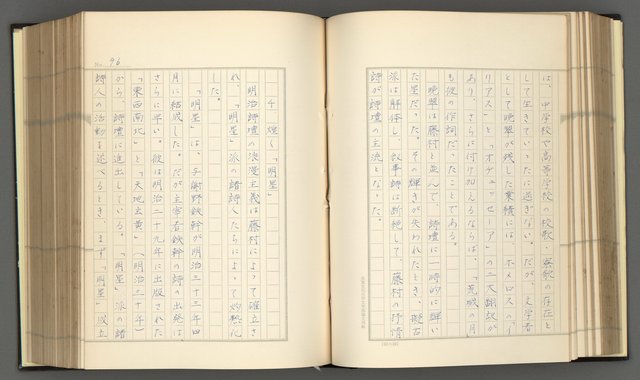 は、中学校や高等学校の校歌・寮歌の存在と
して生きていったに過ぎない。だが、文学者
として晩翠が残した業績には、ホメロスの「イ
リアス」と「オヂュッセーア」の二大翻訳が
あり、さらに付け加えるならば、「荒城の月」
も彼の作詞だったことである。
晩翠は藤村と並んで、詩壇に一時的に輝い
た星だった。その輝きが失われたとき、擬古
派は解体し、叙事詩は断絶して、藤村の抒情
詩が詩壇の主流となった。
No. 96
4 煌く「明星」
明治詩壇の浪漫主義は藤村によって確立さ
れ、「明星」派の諸詩人たちによって灼熱化
した。
「明星」は、与謝野鉄幹が明治三十三年四
月に結成した。だが主宰者鉄幹の詩の出発は
さらに早い。彼は明治二十九年に出版された
「東西南北」と「天地玄黄」(明治三十年)
から、詩壇に進出している。「明星」派の諸
詩人の活動を述べるとき、まず「明星」成立